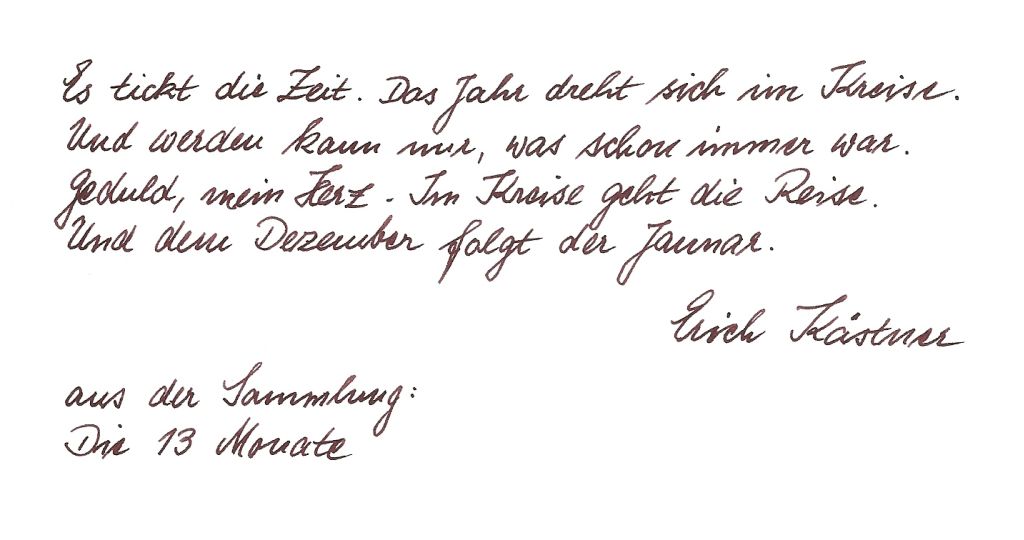 Es tickt die Zeit. Das Jahr dreht sich im Kreise.
Und werden kann nur, was schon immer war.
Geduld, mein Herz. Im Kreise geht die Reise.
Und dem Dezember folgt der Januar.
Erich Kästner
aus der Sammlung:
Die 13 Monate